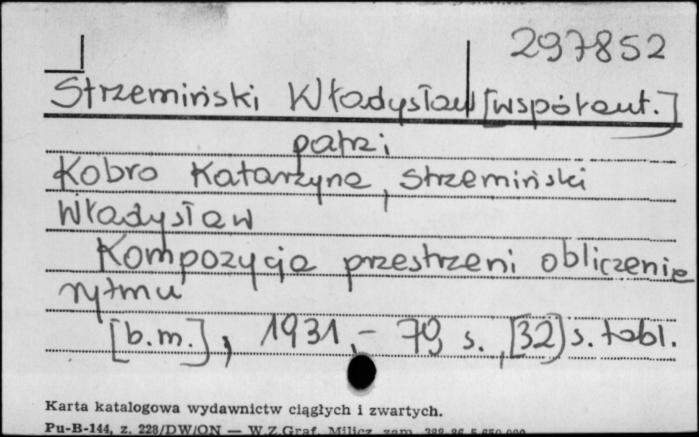 297852
Strzemiński Władysław [współaut.]
patrz
Kobro Katarzyna, Strzemiński
Władysław
Kompozycja przestrzeni obliczenie
rytmu
[b.m.], 1931.- 79 s., [32] s. tabl.
Karta katalogowa wydawnictw ciągłych i zwartych.
Pu-B-144, z. 228/DW/ON — W.Z.Graf. Milicz zam.